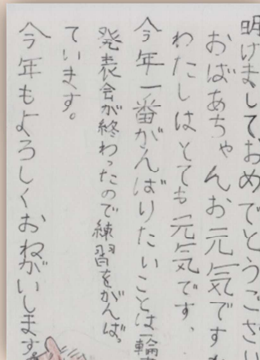 明けましておめでとうござい
おばあちゃんお元気です
わたしはとても元気です、
今年一番がんばりたいことは一輪
発表会が終わったので練習をがんば
ています。
今年もよろしくおねがいします